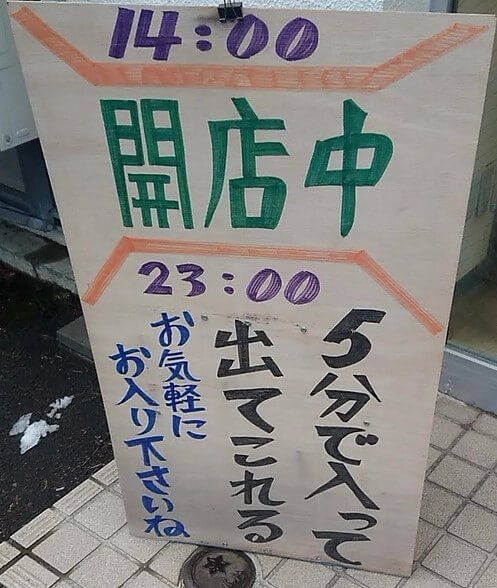 14:00
開店中
23:00
5分で入って
出てこれる
お気軽に
お入り下さいね